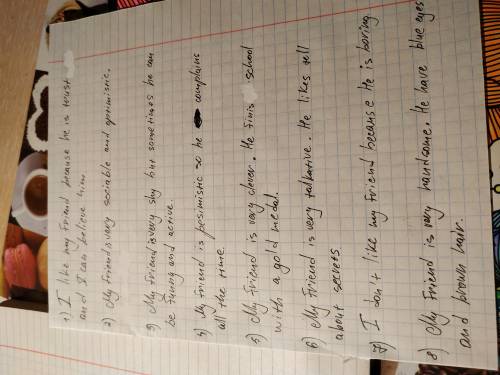 1) I like my friend because he is trust
and I can believe him
2) My friend is very sociable and optimistic.
3) My friend is very shy but sometimes he can
be funny and active.
4) My friend is pesimistic so he complains
all the time.
5) My friend is very clever. He finis school
with a gold medal.
6) My friend is very talkative. He likes tell
about secrets
7) I don't like my friend because He is boring
8) My friend is very handsome. He have blue eyes
and brown hair.